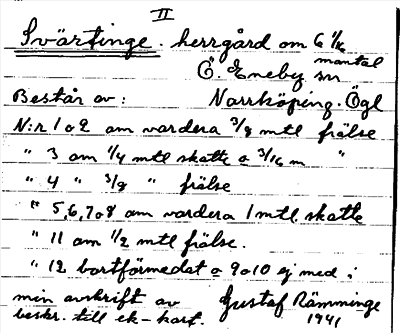 II
Svärtinge. herrgård om 6 1/16
mantal
Ö. Eneby sn
Består av: Norrköping. Ögl
N:r 1 o 2 om vardera 3/8 mtl frälse
" 3 om 1/4 mtl skatte o 3/16 m "
" 4 " 3/8 " frälse
" 5,6,7 o 8 om vardera 1 mtl skatte
" 11 om 1/2 mtl frälse.
" 12 bortförmedat o 9 o 10 ej med i
min avskrift av Gustaf Rämminge
beskr. till ek-kart. 1941